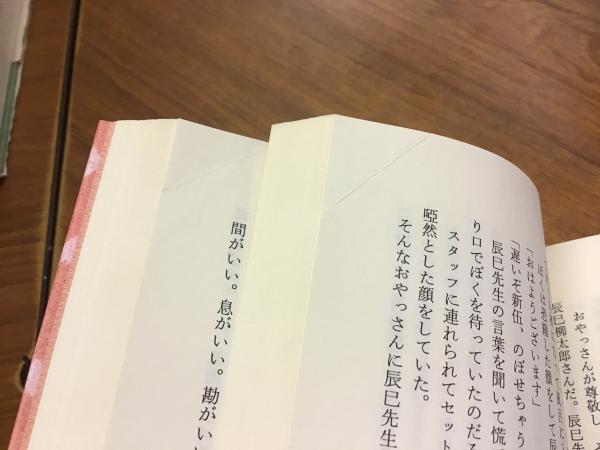 おやっさんが尊敬し
辰巳柳太郎さんだ。辰巳先
ぼくは恐縮した顔をして辰
「おはようございます」
「遅いぞ新伍、のぼせちゃう
辰巳先生の言葉を聞いて慌
り口でぼくを待っていたのだろ
スタッフに連れられてセット
啞然とした顔をしていた。
そんなおやっさんに辰巳先生
間がいい。息がいい。勘がい